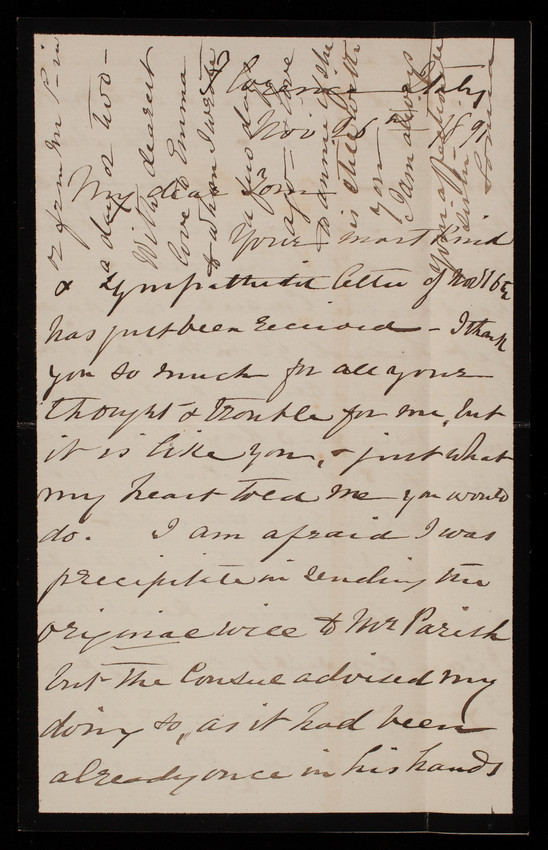 Florence Italy
Nov 26th - 1891
My dear Tom
Your most kind
& sympathetic letter of Nov 16th
has just been received - I thank
you so much for all your
thought & trouble for me, but
it is like you, & just what
my heart told me you would
do. I am afraid I was
precipitate in sending the
original will to Mr Parish
but the Consul advised my
doing so, as it had been
already once in his hands
or from Mr P in
a day or two -
With dearest
love to Emma
to whom I wrote
a few days
ago -
is still with
you -
I am always
Your affectionate
sister